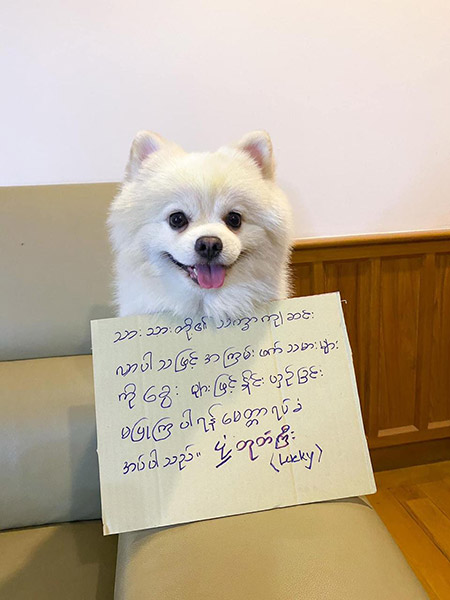 သား သား တို့၏ သိက္ခာ ကျဆင်း
လာပါ သဖြင့် အကြမ်းဖက် သမားများ
ကို ခွေး များဖြင့် နှိုင်း ယှဉ်ခြင်း
မပြုကြ ပါရန် မေတ္တာ ရပ်ခံ
အပ်ပါသည်။ ပုံ တုတ်ကြီး
(Lucky)